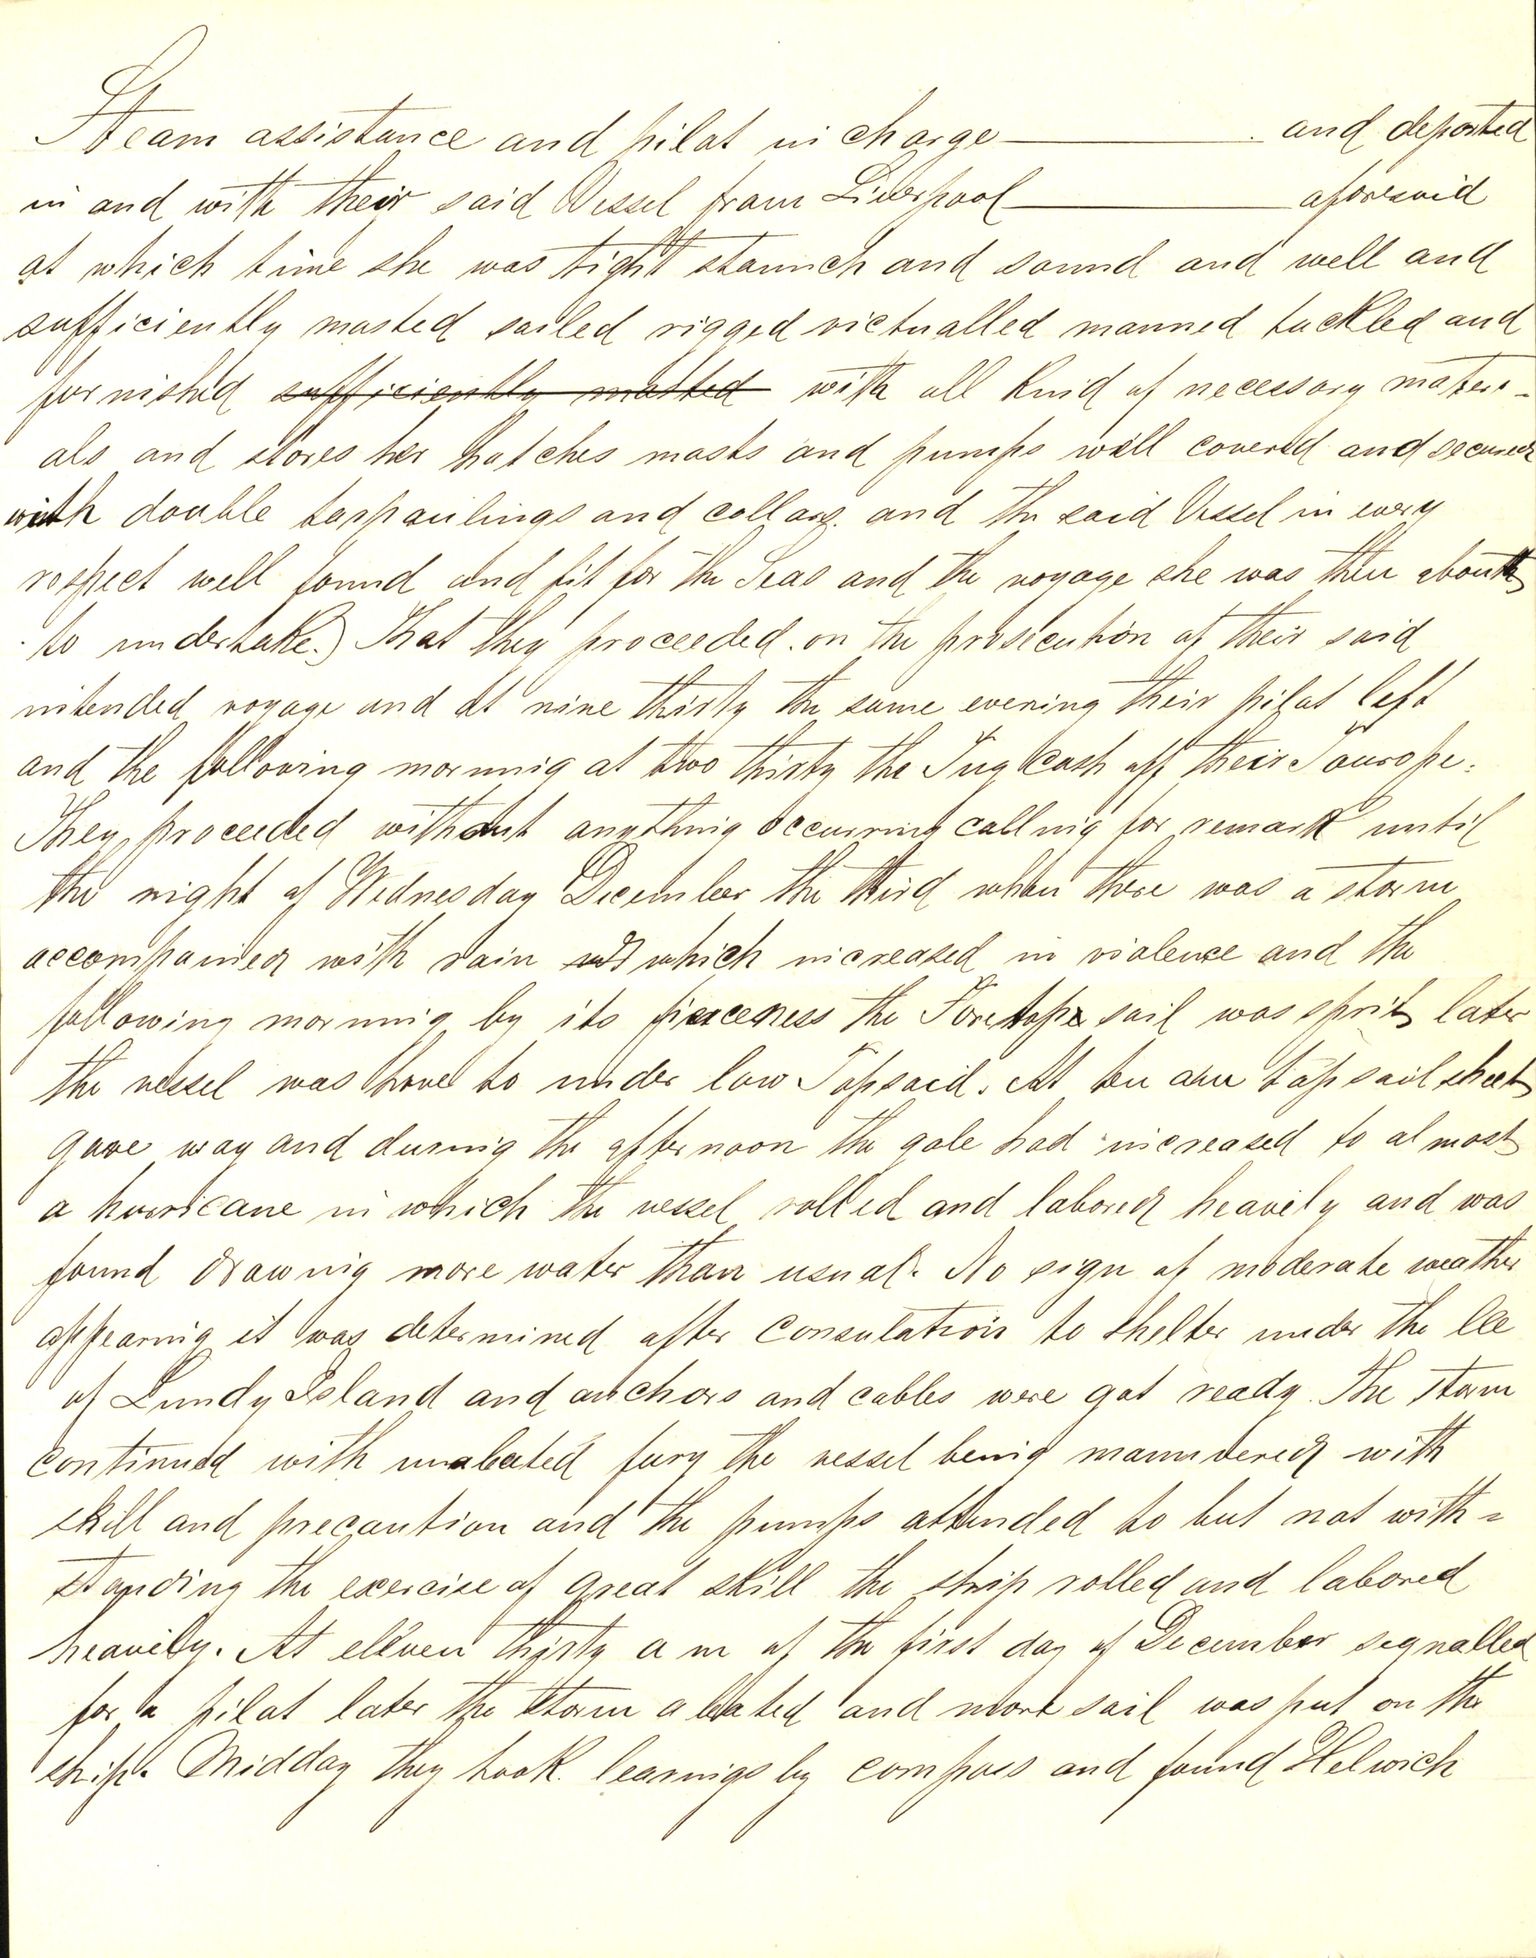 Steam assistance and pilot in charge ———— and departed
in and with their said Vessel from Liverpool ———— aforesaid
at which time she was tight staunch and sound and well and
sufficiently masted sailed rigged victualled manned tackled and
furnished sufficiently masted with all kind of necessary materi-
als and stores her hatches masts and pumps well covered and secured
with double tarpaulings and collars. and the said Vessel in every
respect well found and fit for the Seas and the voyage she was then about
to undertake.) That they proceeded on the prosecution of their said
intended voyage and at nine thirty the same evening their pilot left
and the following morning at two thirty the Tug cash off their Tourope.
They proceeded without anything occurring calling for remark until
the night of Wednesday December the third when there was a storm
accompanied with rain which increased in violence and the
following morning by its fierceness the Foretop sail was sprit later
the vessel was hove to under low Topsail. At ten am topsail sheets
gave way and during the afternoon the gale had increased to almost
a hurricane in which the vessel rolled and labored heavily and was
found drawing more water than usual. No sign of moderate weather
appearing it was determined after Consulation to shelter under the lee
of Lundy Island and anchors and cables were got ready. The storm
continued with unabated fury the vessel being manuvered with
skill and precaution and the pumps attended to but not with=
standing the exercise of great skill the ship rolled and labored
heavily. At elleven thirty a m of the first day of December signalled
for a pilot later the storm abated and more sail was put on the
ship. Midday they took bearings by compass and found Helwich